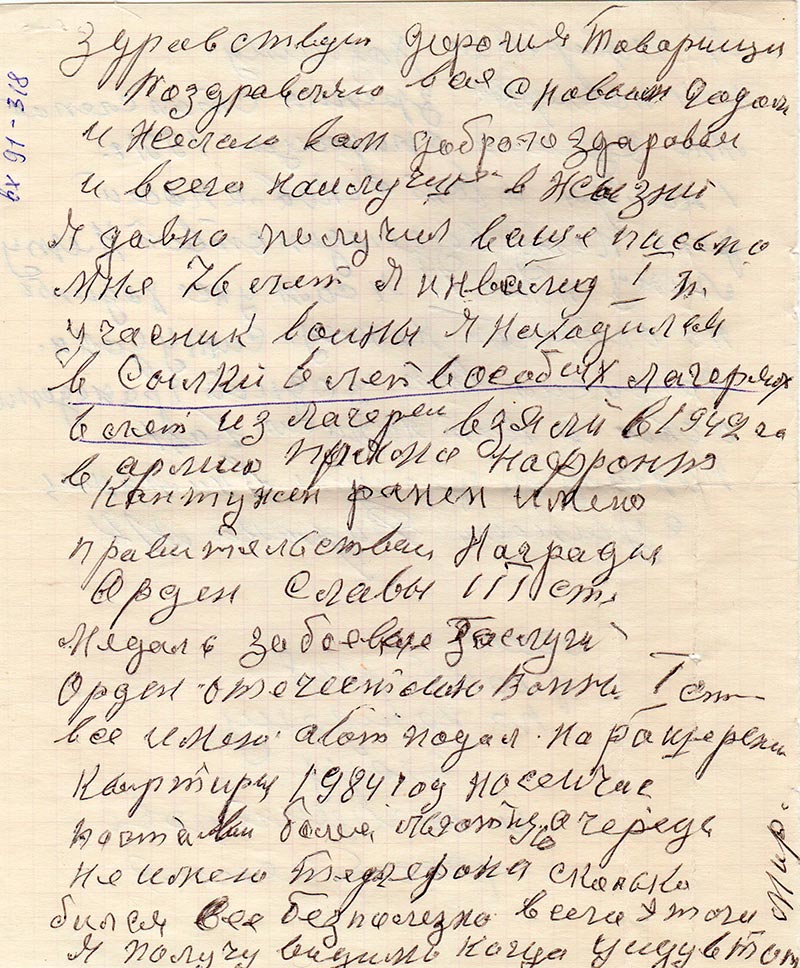 вх 91-318
Здравствуй дорогия Товарищи
Поздравляю вас с новым годом
и желаю вам доброго здаровья
и всего наилучшия в жызни
Я давно получил ваше письмо
мне 76 лет я инвалид I гр.
участник воины я находился
в Сылки 6 лет в особых лагерях
6 лет из лагереи взяли в 1942 го
в армию прямо на фронт
Кантужен ранен имею
правительствен Награды
Орден Славы III ст.
Медаль за боевые Заслуги
Орден отечествено Воины I ст
все имею а вот подал на
Квартиру 1984 год по сеичас
очередь
не имею Тедлефона сколько
бился все безполезно всего этого
я получу видимо когда уиду в тот
мир.